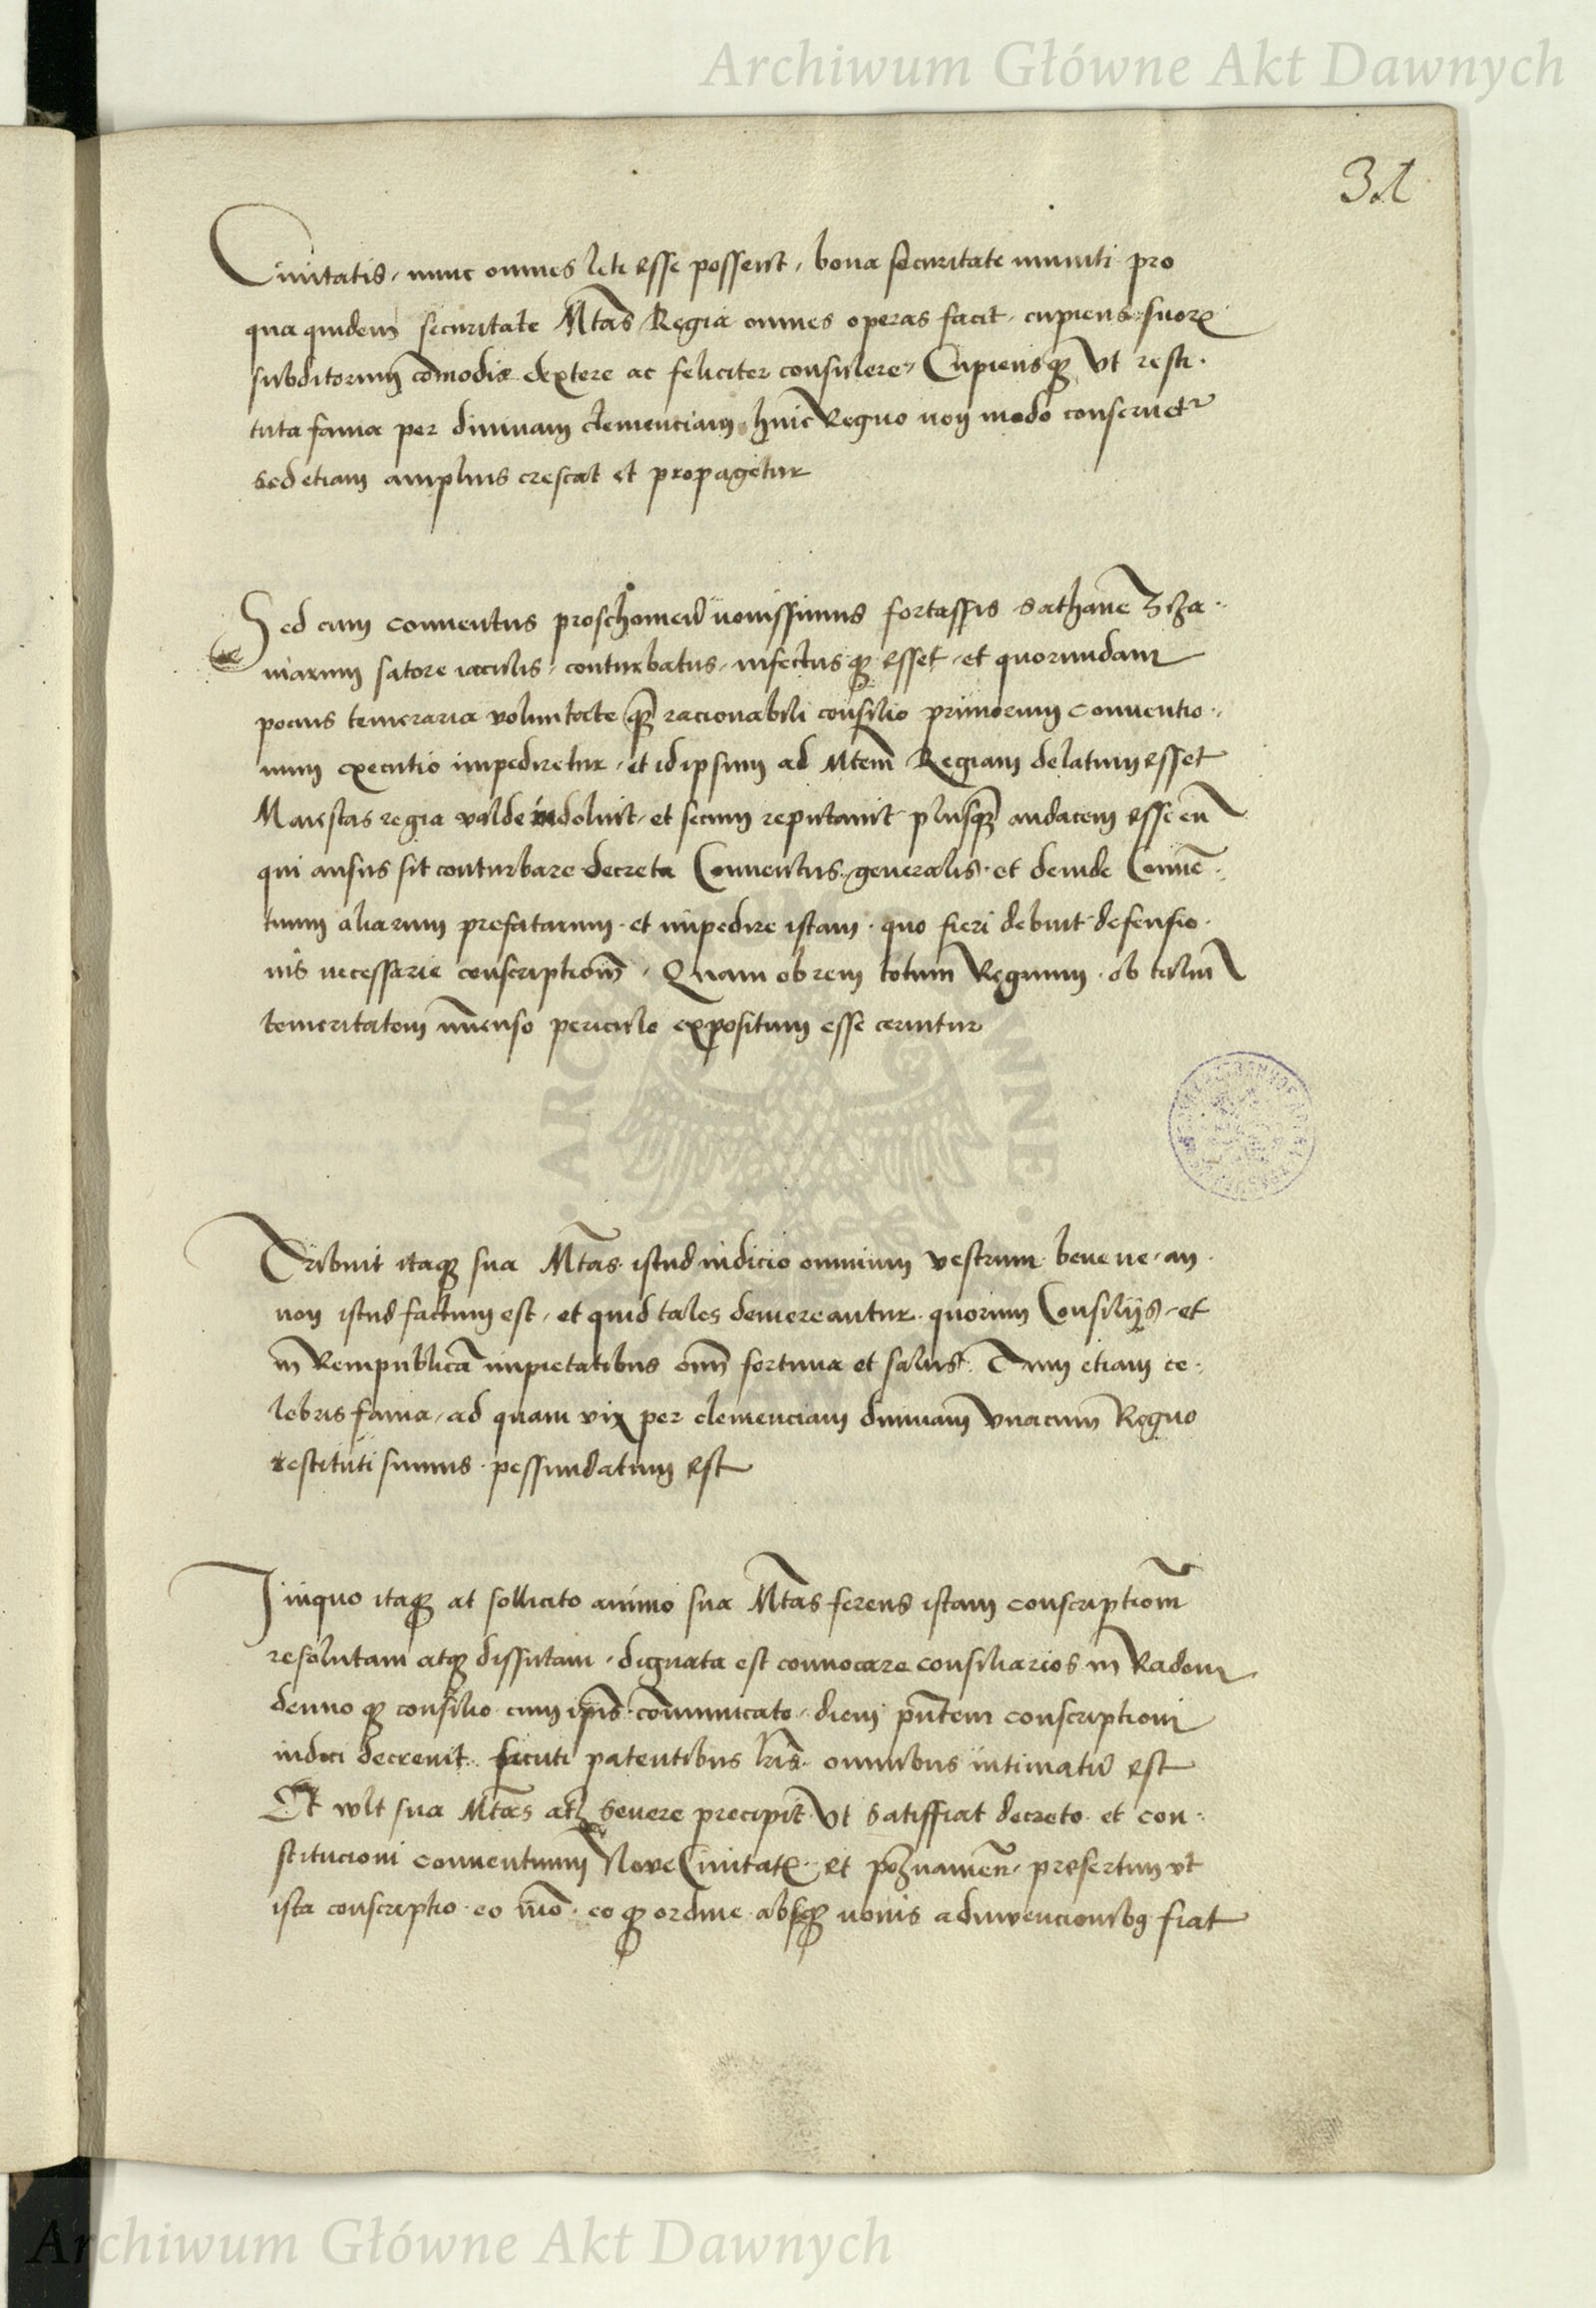 Archiwum Główne Akt Dawnych
31
Civitatis, nunc omnes leti esse possent, bona securitate muniti pro
qua quidem securitate Mtas Regia omnes operas facit, cupiens suorꝝ
subditorum cõmodis dextere ac feliciter consulere, Cupiensqꝫ vt resti-
tuta fama per divinam clemenciam huic Regno non modo conservetr
sed etiam amplius crescat et propagetur
Sed cum conventus novissimus fortassis Sathane Ziza-
niarum satore iaculis, conturbatus, infectusqꝫ esset, et quorundam
pocius temeraria voluntate qꝫ racionabili consilio priorum conventio-
num executio impediretur, et id ipsum ad Mtem Regiam delatum esset
Maiestas regia valde indoluit, et secum reputavit plusqꝫ audacem esse eu̅
qui ausus sit conturbare decreta Conventus generalis, et deinde Conve̅-
tuum aliarum prefatarum, et impedire istam, quo fieri debuit defensio-
nis necessarie conscriptiom̅, Quam ob rem totum Regnum, ob talem
temeritatem im̅enso periculo expositum esse cernitur
Tribuit itaqꝫ sua Mtas istud iudicio omnium vestrum bene ne, an
non istud factum est, et quid tales demereantur, quorum Consilijs, et
in Rempublica̅ impietatibus om̅ fortuna et salus. Tum etiam ce-
lebris fama, ad quam vix per clemenciam divinam vnacum Regno
restituti sumus, pessundatum est
Iniquo itaqꝫ at sollicito animo sua Mtas ferens istam conscriptiom̅
resolutam atqꝫ dissutam, dignata est convocare consiliarios in Radom
denuo qꝫ consilio cum ip̅is com̅unicato, diem pn̅tem conscriptioni
indici decrevit, sicuti patentibus lr̅is omnibus intimatu̅ est
Et vult sua Mtas atqꝫ severe precipit vt satisfiat decreto et con-
stitucioni conventuum Nove Civitatꝭ et poznamen̅, presertim vt
ista conscriptio eo mo̅, eo qꝫ ordine absqꝫ novis adinvencionibꝰ fiat
Archiwum Główne Akt Dawnych